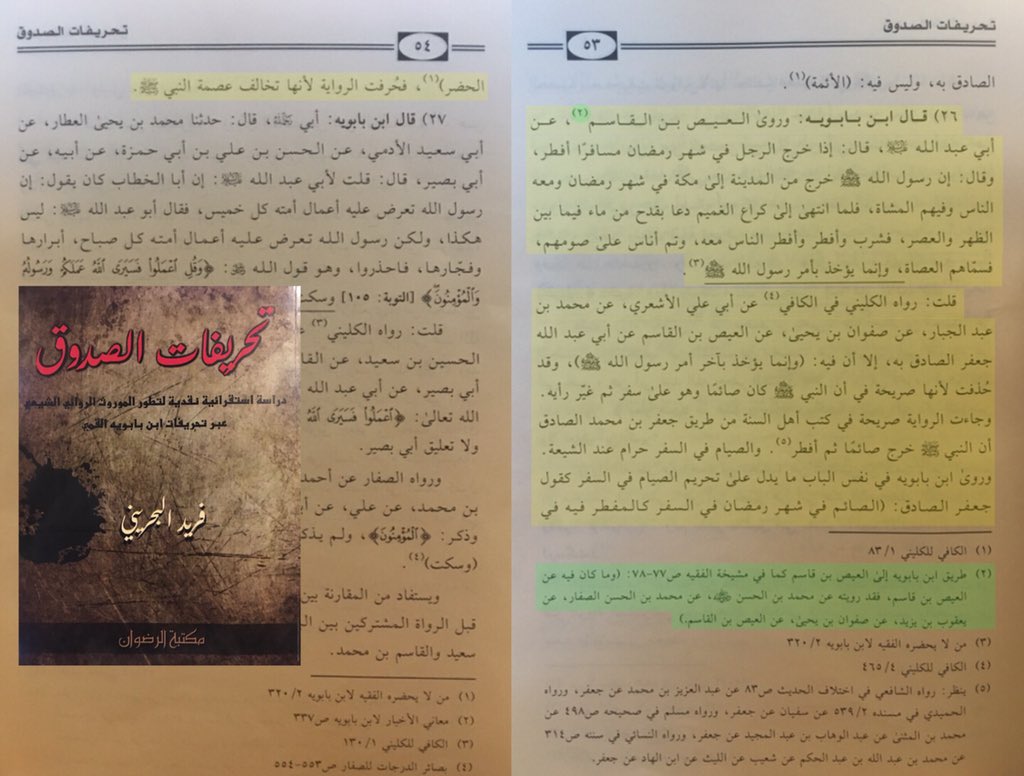 تحريفات الصدوق
٥٣
الصادق به، وليس فيه: (الأئمة)(١).
٢٦) قال ابن بابويه: وروىٰ العيص بن القاسم(٢)، عن
أبي عبد الله ﵇، قال: إذا خرج الرجل في شهر رمضان مسافرًا أفطر،
وقال: إن رسول الله ﷺ خرج من المدينة إلىٰ مكة في شهر رمضان ومعه
الناس وفيهم المشاة، فلما انتهىٰ إلىٰ كراع الغميم دعا بقدح من ماء فيما بين
الظهر والعصر، فشرب وأفطر وأفطر الناس معه، وتم أناس علىٰ صومهم،
فسمّاهم العصاة، وإنما يؤخذ بأمر رسول الله ﷺ(٣).
قلت: رواه الكليني في الكافي(٤) عن أبي علي الأشعري، عن محمد بن
عبد الجبار، عن صفوان بن يحيىٰ، عن العيص بن القاسم عن أبي عبد الله
جعفر الصادق به، إلا أن فيه: (وإنما يؤخذ بآخر أمر رسول الله ﷺ)، وقد
حُذفت لأنها صريحة في أن النبي ﷺ كان صائمًا وهو علىٰ سفر ثم غيّر رأيه.
وجاءت الرواية صريحة في كتب أهل السنة من طريق جعفر بن محمد الصادق
أن النبي ﷺ خرج صائمًا ثم أفطر(٥). والصيام في السفر حرام عند الشيعة.
وروىٰ ابن بابويه في نفس الباب ما يدل علىٰ تحريم الصيام في السفر كقول
جعفر الصادق: (الصائم في شهر رمضان في السفر كالمفطر فيه في
(١) الكافي للكليني ٨٣/١
(٢) طريق ابن بابويه إلىٰ العيص بن قاسم كما في مشيخة الفقيه ص٧٧-٧٨: (وما كان فيه عن
العيص بن قاسم، فقد رويته عن محمد بن الحسن ﵁، عن محمد بن الحسن الصفار، عن
يعقوب بن يزيد، عن صفوان بن يحيىٰ، عن العيص بن القاسم.)
(٣) من لا يحضره الفقيه لابن بابويه ٣٢٠/٢
(٤) الكافي للكليني ٤٦٥/٤
(٥) ينظر: رواه الشافعي في اختلاف الحديث ص٨٣ عن عبد العزيز بن محمد عن جعفر، ورواه
الحميدي في مسنده ٥٣٩/٢ عن سفيان عن جعفر، ورواه مسلم في صحيحه ص٤٩٨ عن
محمد بن المثنىٰ عن عبد الوهاب بن عبد المجيد عن جعفر، ورواه النسائي في سننه ص٣١٤
عن محمد بن عبد الله بن عبد الحكم عن شعيب عن الليث عن ابن الهاد عن جعفر.
تحريفات الصدوق
٥٤
الحضر)(١)، فحُرفت الرواية لأنها تخالف عصمة النبي ﷺ.
٢٧) قال ابن بابويه: أبي ﵀، قال: حدثنا محمد بن يحيىٰ العطار، عن
أبي سعيد الأدمي، عن الحسن بن علي بن أبي حمزة، عن أبيه، عن
أبي بصير، قال: قلت لأبي عبد الله ﵇: إن أبا الخطاب كان يقول: إن
رسول الله تعرض عليه أعمال أمته كل خميس، فقال أبو عبد الله ﵇: ليس
هكذا، ولكن رسول الله تعرض عليه أعمال أمته كل صباح، أبرارها
وفجّارها، فاحذروا، وهو قول الله ﷿: ﴿وَقُلِ ٱعْمَلُوا۟ فَسَيَرَى ٱللَّهُ عَمَلَكُمْ وَرَسُولُهُ
وَٱلْمُؤْمِنُونَ﴾ [التوبة: ١٠٥] وسكت
قلت: رواه الكليني(٣)
الحسين بن سعيد، عن
أبي بصير، عن أبي عبد الله
الله تعالىٰ: ﴿ٱعْمَلُوا۟ فَسَيَرَى ٱللَّهُ
ولا تعليق أبي بصير.
ورواه الصفار عن أحمد
بن محمد، عن علي، عن
وذكر: ﴿ٱلْمُؤْمِنُونَ﴾، ولم
(وسكت)(٤).
ويستفاد من المقارنة بين
قبل الرواة المشتركين بين
سعيد والقاسم بن محمد.
(١) من لا يحضره الفقيه لابن بابويه ٣٢٠/٢
(٢) معاني الأخبار لابن بابويه ص٣٣٧
(٣) الكافي للكليني ١٣٠/١
(٤) بصائر الدرجات للصفار ص٥٥٣-٥٥٤
تحريفات الصدوق
دراسة استقرائية نقدية لتطور الموروث الروائي الشيعي
عبر تحريفات ابن بابويه القمي
فريد البحريني
مكتبة الرضوان